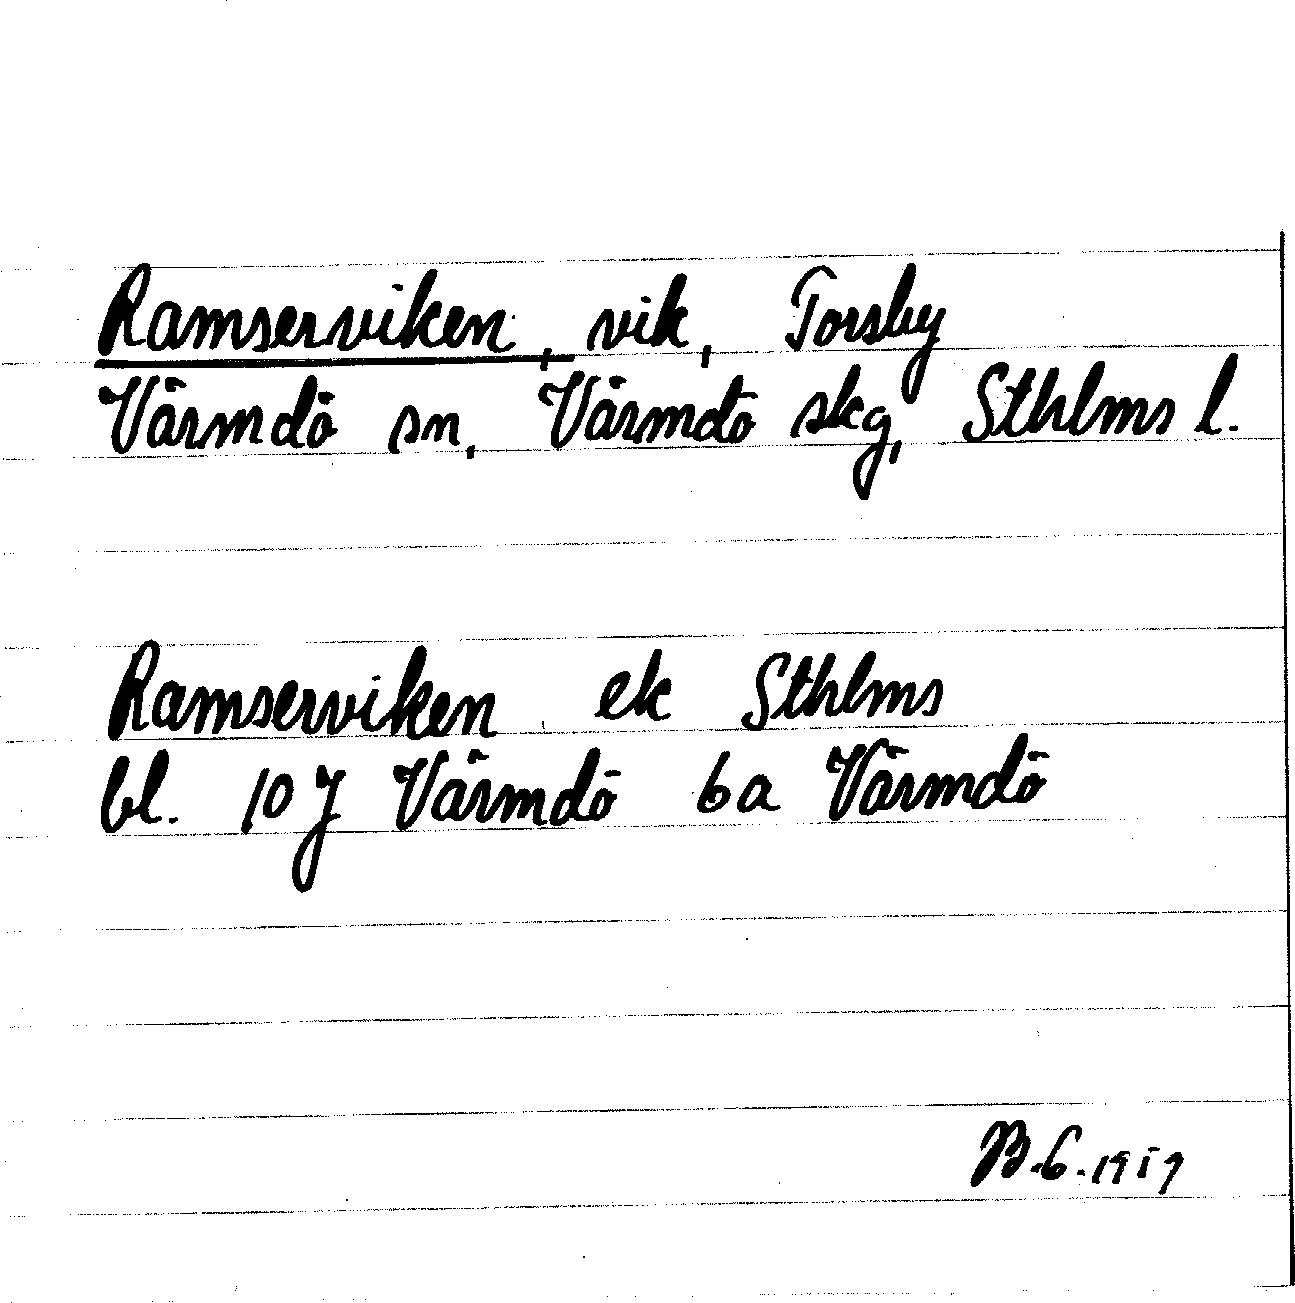 Ramserviken, vik, Torsby
Värmdö sn, Värmdö skg, Sthlms l.
Ramserviken ek Sthlms
bl. 10 J Värmdö 6a Värmdö
B.G. 1959